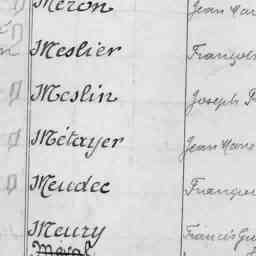 Méron Jean Mar
Meslier François
Meslin Joseph
Métayer Jean Marie
Meudec François
Meury Francis
Méral